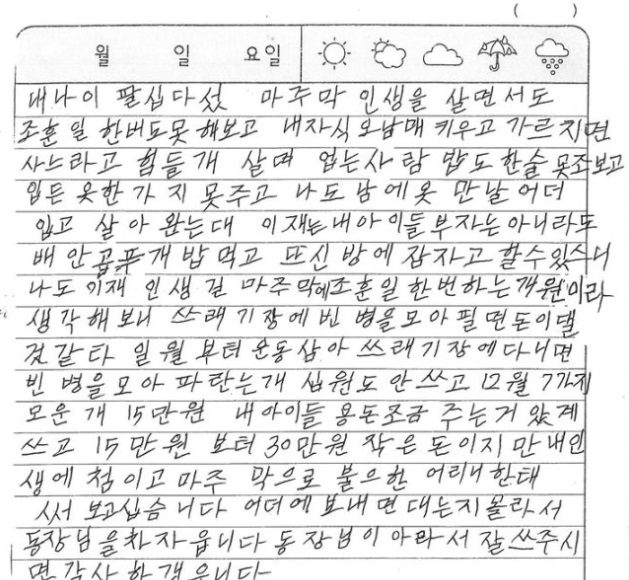 (          )
월 일 요일
내나이 팔십다섯 마주막 인생을 살면서도
조훈일 한버도못 해보고 내자식 오남매 키우고 가르치면
사느라고 힘들개 살며 업는사람 밥도 한술 못조보고
입든 옷한가지 못주고 나도 남에옷 만날 어더
입고 살아 왔는대 이재는 내아이들 부자는아니라도
배 안곱푸개 밥먹고 뜨신 방에 잠자고 할수있스니
나도 이재 인생길 마주막에조훈일 한번하는개 원이라
생각해보니 쓰래기장에 빈 병을모아 필면돈이댈
것같타 일월부터 운동삼아 쓰래기장에다니면
빈 병을모아 파란는개 십원도 안쓰고 12월 7가지
모운개 15만원 내아이들 용돈조금 주는거 았계
쓰고 15만원 보터 30만원 작은 돈이지만내인
생에 첨이고 마주막으로 불으한 어리니한태
써보고십습니다 어더에 보내면대는지몰라서
동장님을차자읍니다 동장님이 아라서 잘쓰주시
면감사하갰읍니다